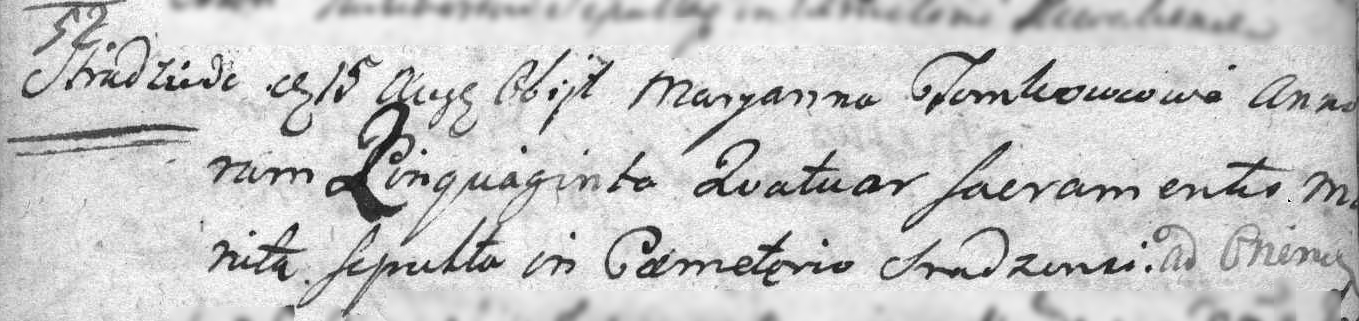 52
Stradziedz 15 Aug Obijt Maryanna Tomkowowa Anno
rum Quinquaginta Quatuor sacramentis Mu
nita sepulta in Cæmeterio Sradzensi. ad